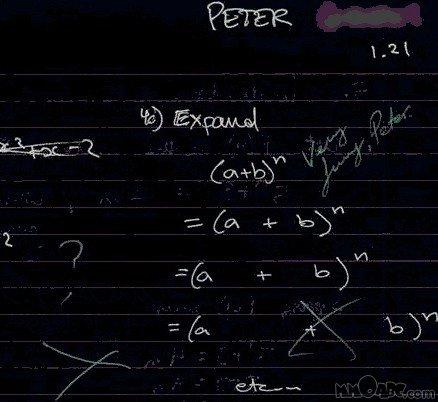 PETER
1.21
4c) Expand
(a+b)ⁿ
Very funny, Peter.
= (a + b)ⁿ
= (a + b)ⁿ
?
= (a + b)ⁿ
etc...
MMOABC.com